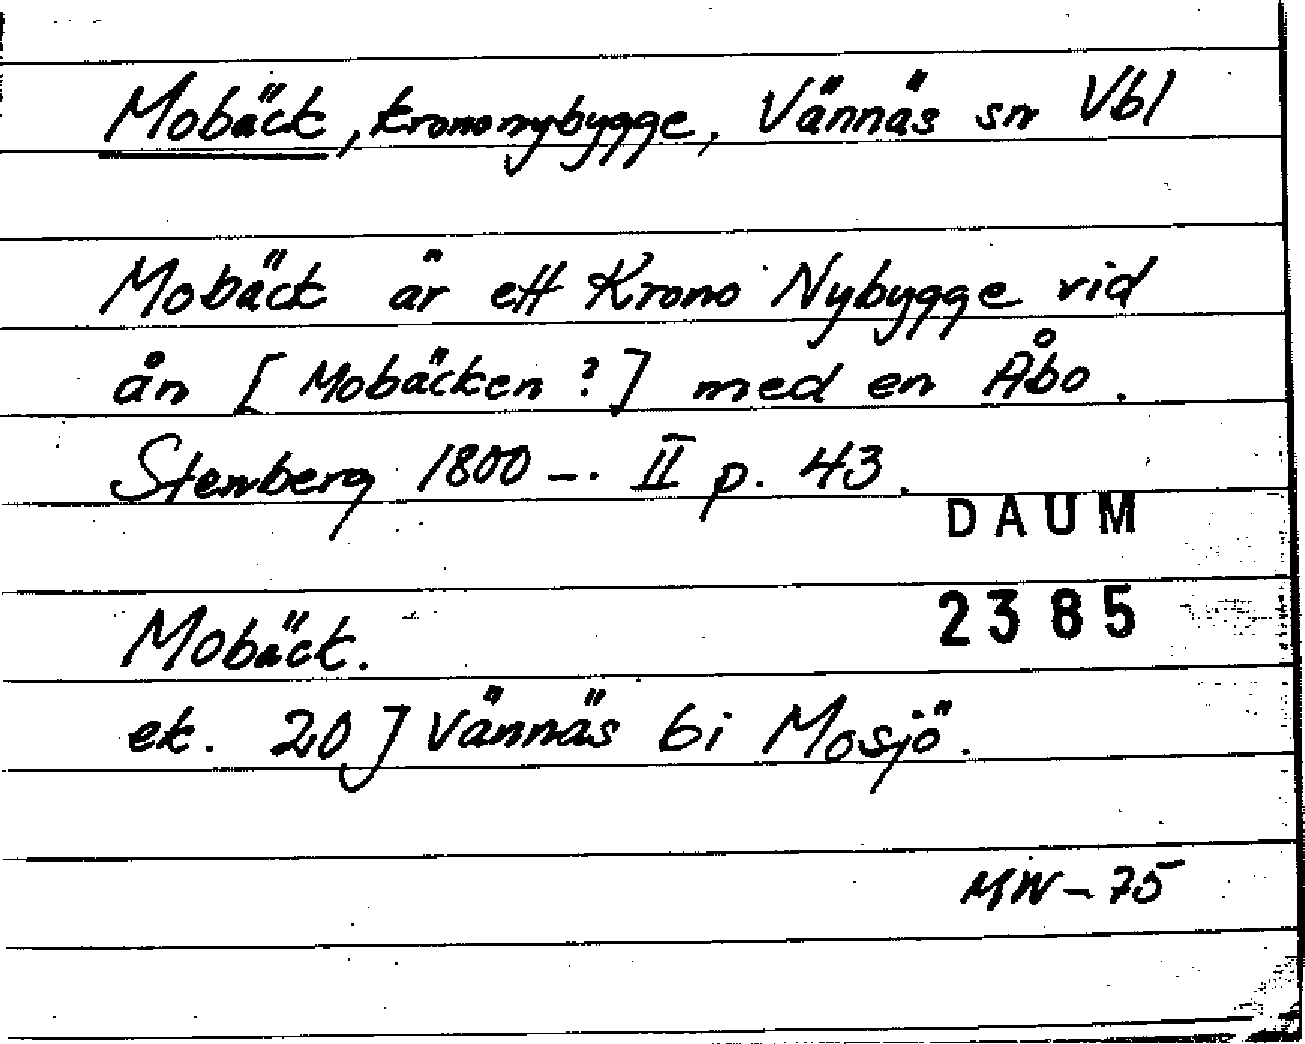 Mobäck, krononybygge, Vännäs sn Vbl
Mobäck är ett Krono Nybygge vid
ån [Mobäcken?] med en Åbo.
Stenberg 1800-. II p. 43.
DAUM
2385
Mobäck.
ek. 20 J Vännäs bi Mosjö.
MW-75